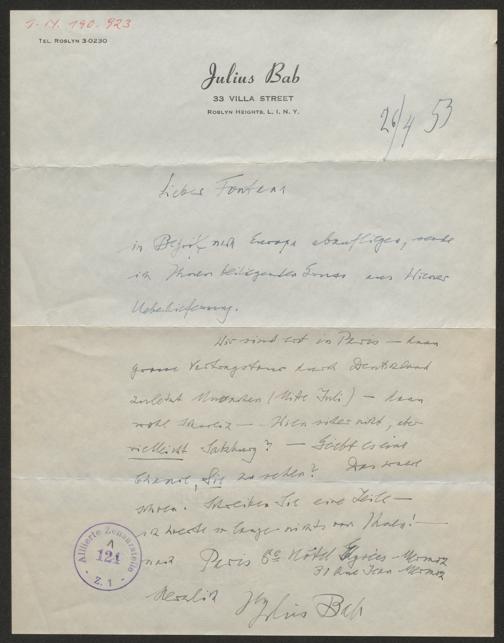 I.N. 190.923
TEL. ROSLYN 3-0230
Julius Bab
33 VILLA STREET
ROSLYN HEIGHTS, L. I., N. Y.
26/4 53
Lieber Fontana
in Begriff nach Europa abzufliegen, sende
ich Ihnen beiliegenden Gruss aus Wiener
Ueberlieferung.
Wir sind erst in Paris — dann
grosse Vortragstour durch Deutschland
zuletzt Muenchen (Mitte Juli) — dann
wohl Schweiz — Wien sicher nicht, aber
vielleicht Salzburg? — Giebt es eine
Chance, Sie zu sehen? Das waere
schoen. Schreiben Sie eine Zeile —
ich hoerte so lange nichts von Ihnen! —
nach Paris 8e Hôtel Elysées-Mermoz
31 Rue Jean Mermoz
Herzlich Ihr
Julius Bab
Alliierte Zensurstelle
121
Z. 1